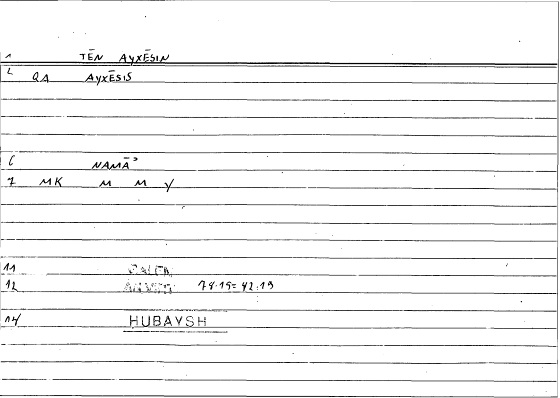 1 TĒN AYXĒSIN
2 QA AYXĒSIS
6 NAMĀʾ
7 MK M M y
11 GALEN
12 78.15= 42.19
14 HUBAYSH